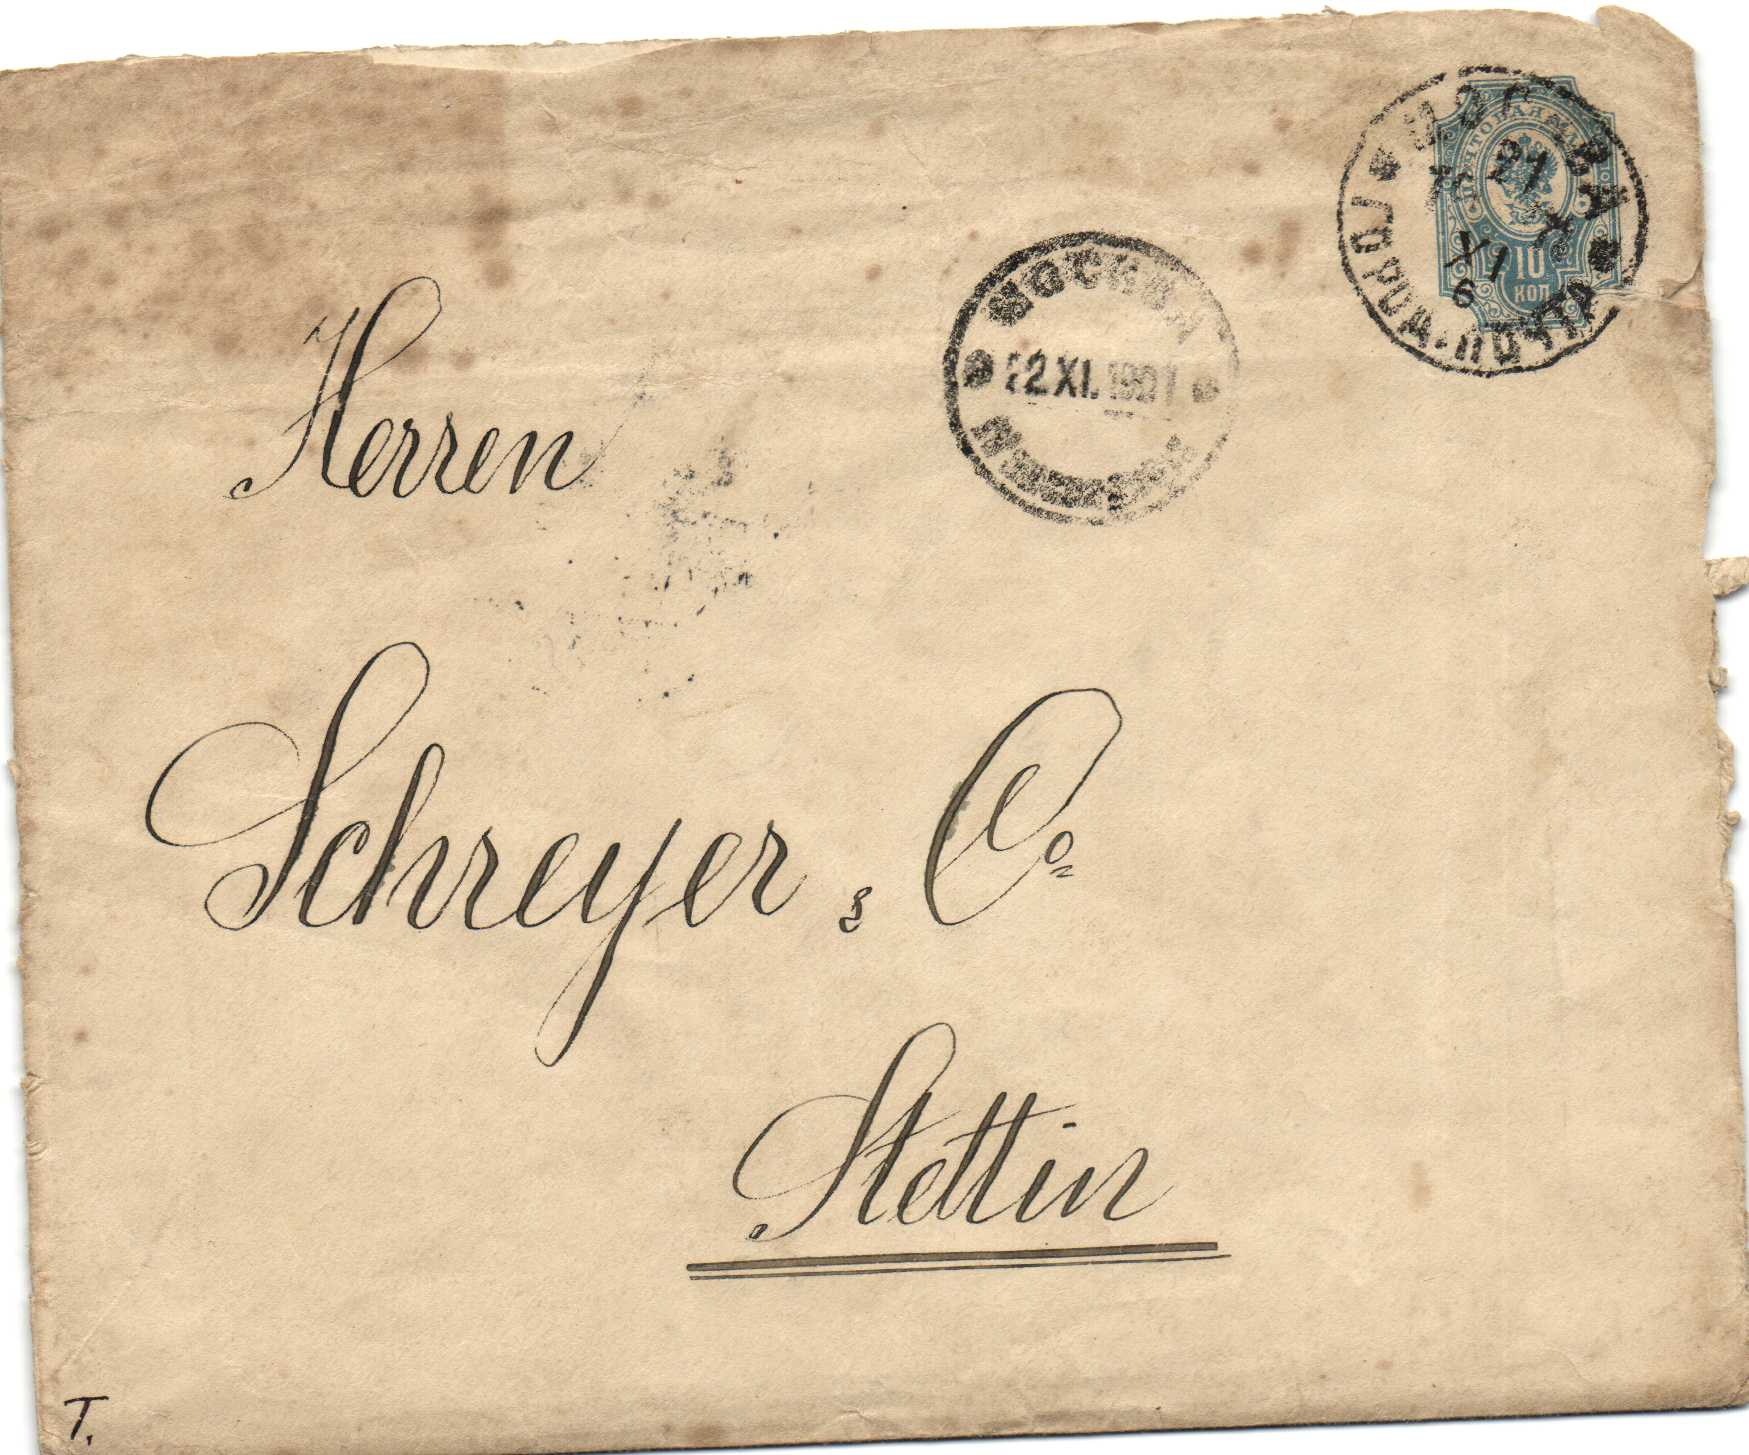 МОСКВА
21
XI
6
ГОРОД. ПОЧТА
ПОЧТОВАЯ
10
КОП
МОСКВА
22 XI. 1901
Herren
Schreyer & Co
Stettin
T.